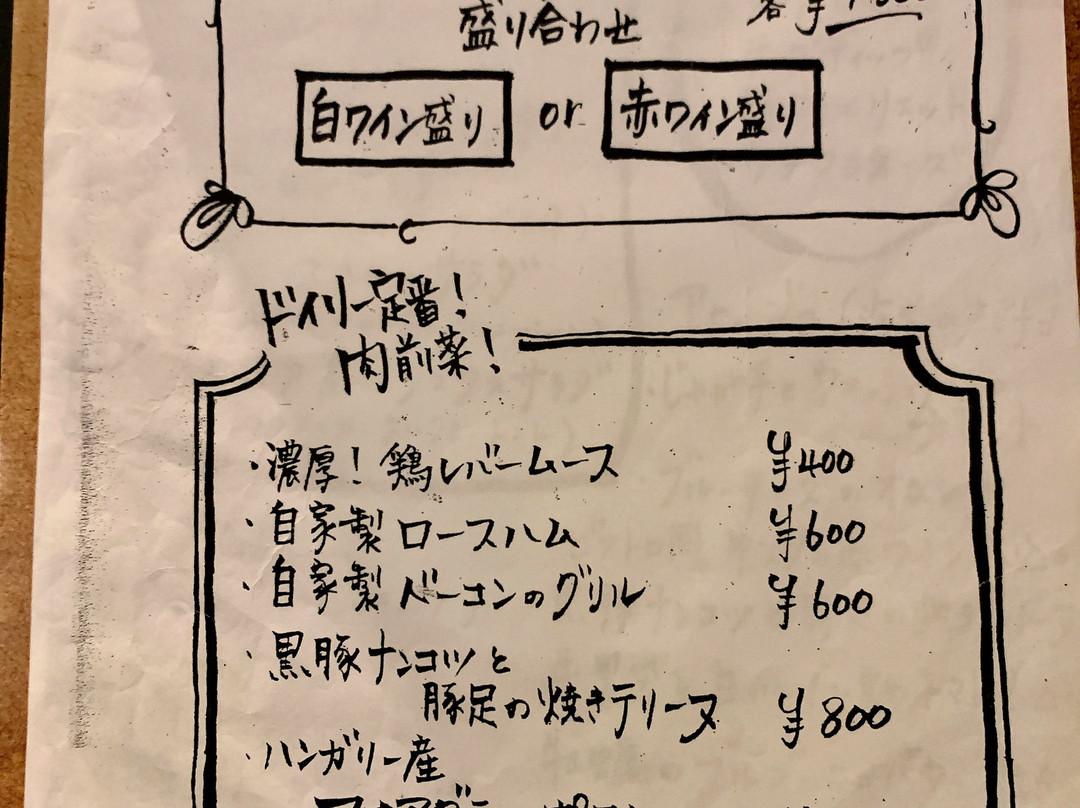 盛り合わせ
白ワイン盛り or 赤ワイン盛り
ドイリー定番!
肉前菜!
・濃厚! 鶏レバームース ¥400
・自家製 ロースハム ¥600
・自家製 ベーコンのグリル ¥600
・黒豚ナンコツと
豚足の焼きテリーヌ ¥800
・ハンガリー産